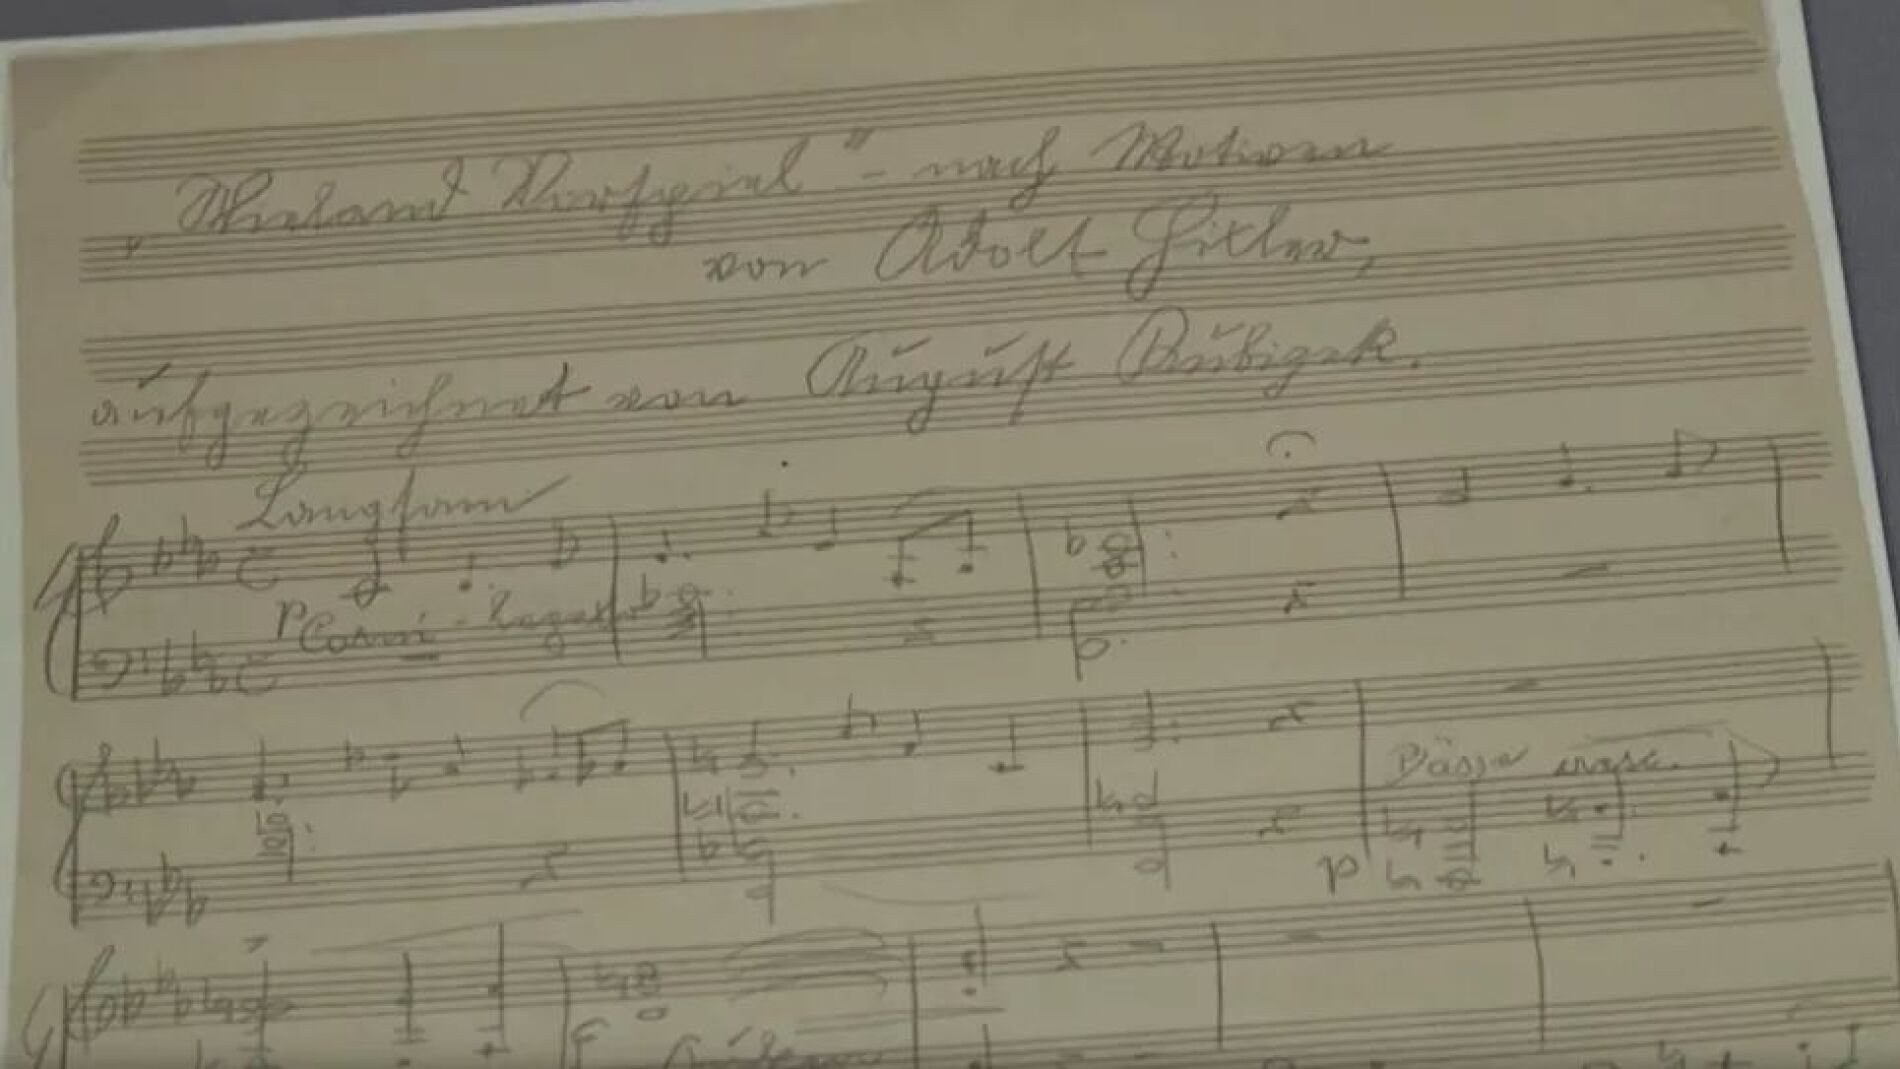 „Wieland Vorspiel" – nach Motiven
von Adolf Hitler,
aufgezeichnet von August Kubizek.
Langsam
p Corni -
Bässe
p
f